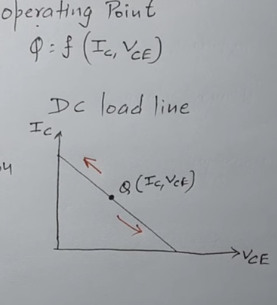 operating Point
Q : f (Ic, VCE)
DC load line
Ic
Q (Ic, VCE)
VCE